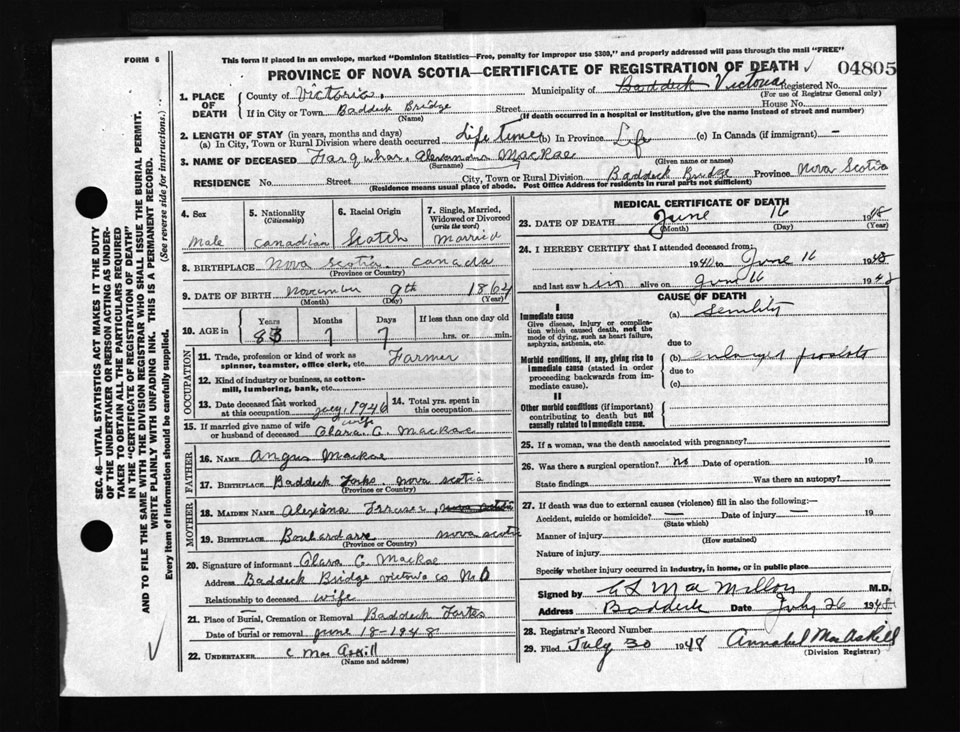 FORM 6
This form if placed in an envelope, marked "Dominion Statistics—Free, penalty for improper use $300," and properly addressed will pass through the mail "FREE"
PROVINCE OF NOVA SCOTIA—CERTIFICATE OF REGISTRATION OF DEATH
04805
1. PLACE OF DEATH
County of Victoria. Municipality of Baddeck Victoria Registered No.
(For use of Registrar General only)
If in City or Town Baddeck Bridge Street House No.
(Name) (If death occurred in a hospital or institution, give the name instead of street and number)
2. LENGTH OF STAY (in years, months and days)
(a) In City, Town or Rural Division where death occurred Life time (b) In Province Life (c) In Canada (if immigrant) —
3. NAME OF DECEASED Farquhar MacRae
(Surname) (Given name or names)
RESIDENCE No. Street City, Town or Rural Division Baddeck Bridge Province Nova Scotia
(Residence means usual place of abode. Post Office Address for residents in rural parts not sufficient)
4. Sex
Male
5. Nationality
(Citizenship)
Canadian
6. Racial Origin
Scotch
7. Single, Married, Widowed or Divorced
(write the word)
Married
8. BIRTHPLACE Nova Scotia Canada
(Province or Country)
9. DATE OF BIRTH November 9th 1864
(Month) (Day) (Year)
10. AGE in
Years Months Days If less than one day old
83 7 7 hrs. or min.
OCCUPATION
11. Trade, profession or kind of work as spinner, teamster, office clerk, etc. Farmer
12. Kind of industry or business, as cotton-mill, lumbering, bank, etc.
13. Date deceased last worked at this occupation 1946
14. Total yrs. spent in this occupation
15. If married give name of wife or husband of deceased wife Clara C. MacRae
FATHER
16. NAME Angus MacRae
17. BIRTHPLACE Baddeck Forks Nova Scotia
(Province or Country)
MOTHER
18. MAIDEN NAME Alexana Fraser,
19. BIRTHPLACE Boulardarie Nova Scotia
(Province or Country)
20. Signature of informant Clara C. MacRae
Address Baddeck Bridge Victoria Co N.S
Relationship to deceased wife
21. Place of Burial, Cremation or Removal Baddeck Forks
Date of burial or removal June 18-1948
22. UNDERTAKER C MacAskill
(Name and address)
MEDICAL CERTIFICATE OF DEATH
23. DATE OF DEATH June 16 1948
(Month) (Day) (Year)
24. I HEREBY CERTIFY that I attended deceased from:
1940 to June 16 1948
and last saw him alive on June 16 1948
CAUSE OF DEATH
I
Immediate cause
Give disease, injury or complication which caused death, not the mode of dying, such as heart failure, asphyxia, asthenia, etc.
(a) Senility
due to
Morbid conditions, if any, giving rise to immediate cause (stated in order proceeding backwards from immediate cause).
(b) enlarged prostate
due to
(c)
II
Other morbid conditions (if important) contributing to death but not causally related to immediate cause.
25. If a woman, was the death associated with pregnancy?
26. Was there a surgical operation? no Date of operation 19
State findings Was there an autopsy?
27. If death was due to external causes (violence) fill in also the following:—
Accident, suicide or homicide? Date of injury 19
(State which)
Manner of injury
(How sustained)
Nature of injury
Specify whether injury occurred in industry, in home, or in public place
Signed by MacMillan M.D.
Address Baddeck Date July 26 1948
28. Registrar's Record Number
29. Filed July 30 1948 Annabel MacAskill
(Division Registrar)
SEC. 46—VITAL STATISTICS ACT MAKES IT THE DUTY OF THE UNDERTAKER OR PERSON ACTING AS UNDERTAKER TO OBTAIN ALL THE PARTICULARS REQUIRED IN THE "CERTIFICATE OF REGISTRATION OF DEATH" AND TO FILE THE SAME WITH THE DIVISION REGISTRAR WHO SHALL ISSUE THE BURIAL PERMIT.
WRITE PLAINLY WITH UNFADING INK. THIS IS A PERMANENT RECORD.
Every item of information should be carefully supplied. (See reverse side for instructions.)